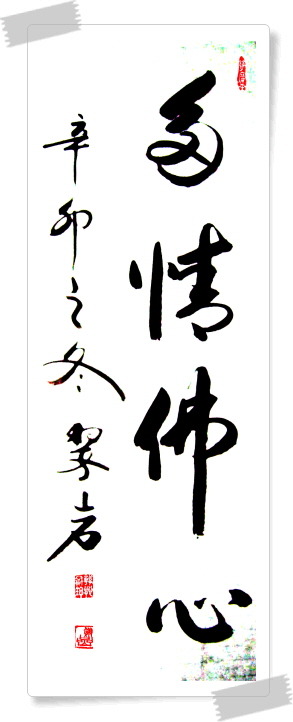 多情佛心
辛卯之冬翠岩